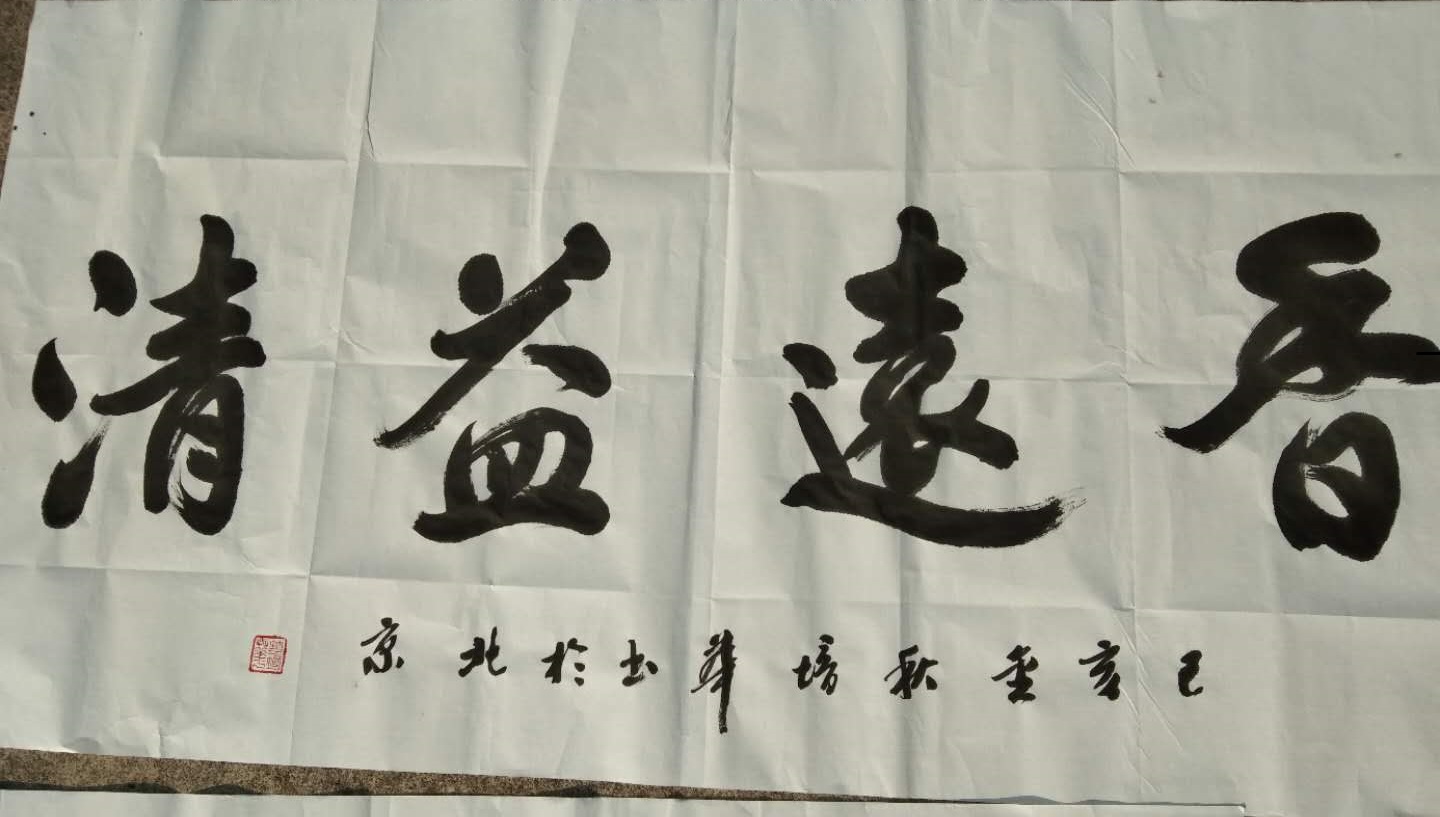 香遠益清
己亥金秋培華书於北京